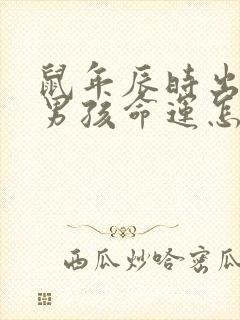 鼠年辰时出
男孩命运怎
西瓜炒哈密瓜